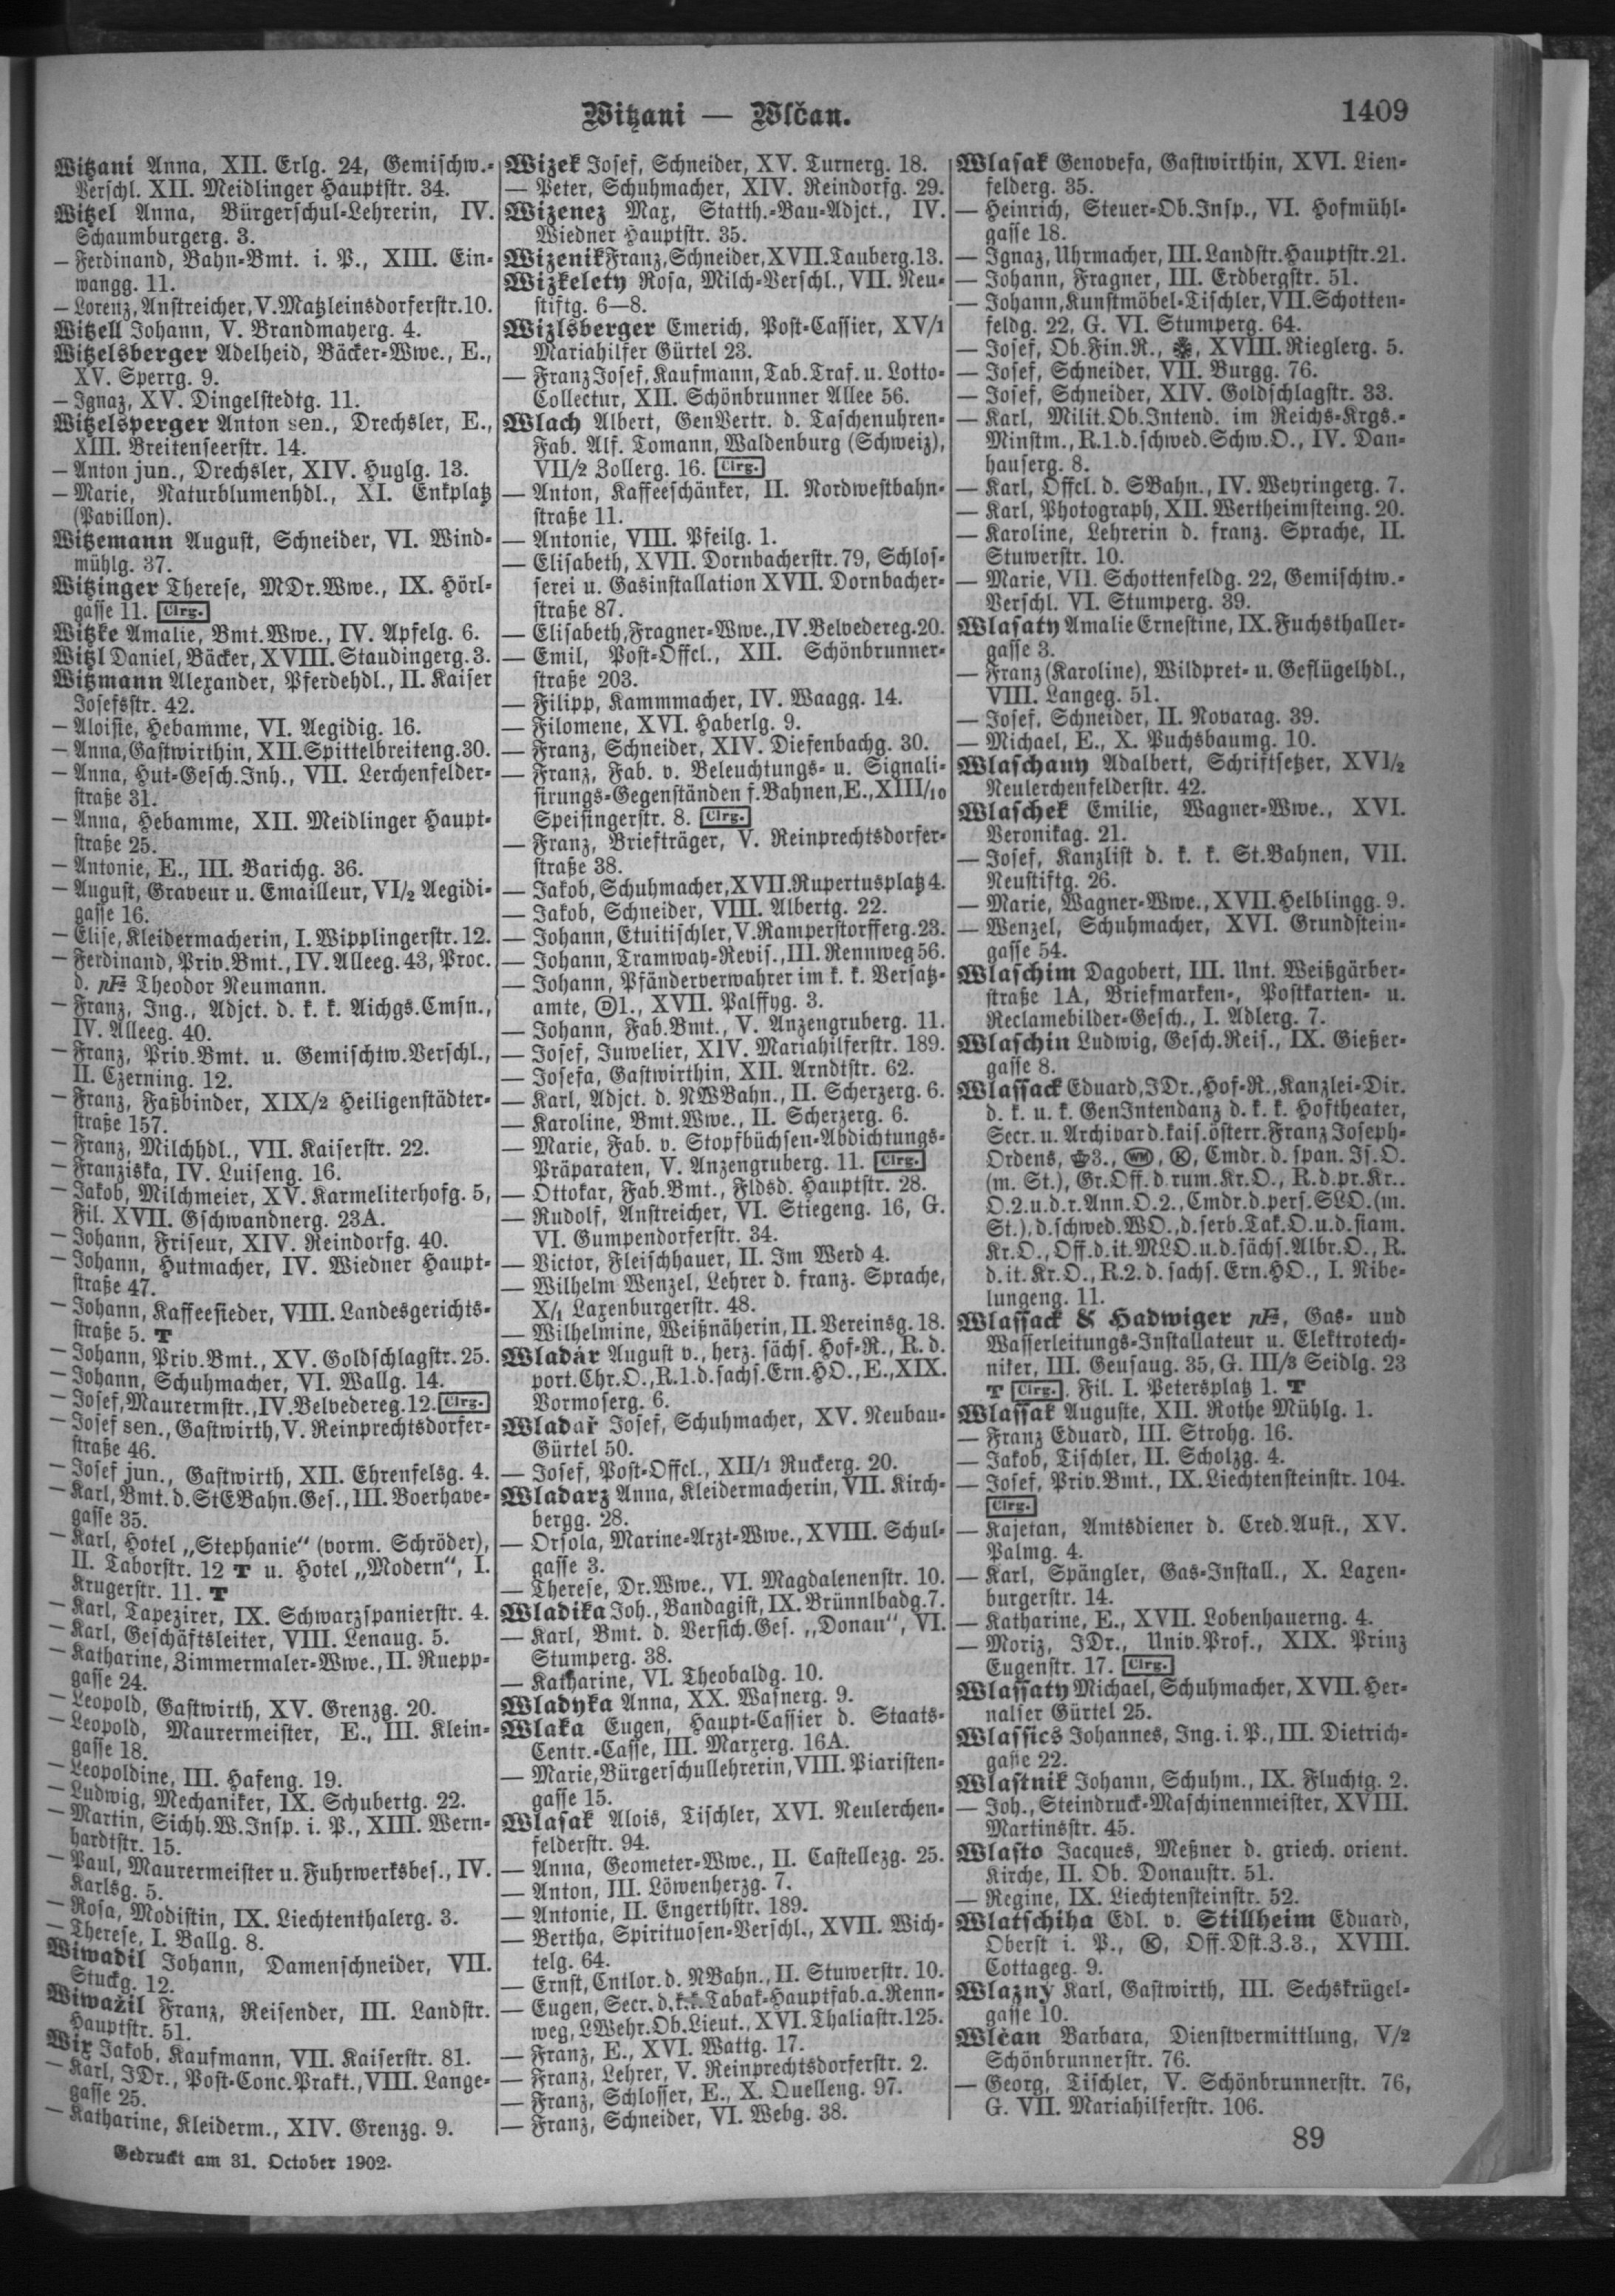 Witzani — Wlčan.
1409
Witzani Anna, XII. Erlg. 24, Gemischw.-
Verschl. XII. Meidlinger Hauptstr. 34.
Witzel Anna, Bürgerschul-Lehrerin, IV.
Schaumburgerg. 3.
— Ferdinand, Bahn-Bmt. i. P., XIII. Ein-
wangg. 11.
— Lorenz, Anstreicher, V. Matzleinsdorferstr. 10.
Witzell Johann, V. Brandmayerg. 4.
Witzelsberger Adelheid, Bäcker-Wwe., E.,
XV. Sperrg. 9.
— Ignaz, XV. Dingelstedtg. 11.
Witzelsperger Anton sen., Drechsler, E.,
XIII. Breitenseerstr. 14.
— Anton jun., Drechsler, XIV. Huglg. 13.
— Marie, Naturblumenhdl., XI. Enkplatz
(Pavillon).
Witzemann August, Schneider, VI. Wind-
mühlg. 37.
Witzinger Therese, MDr.Wwe., IX. Hörl-
gasse 11. Clrg.
Witzke Amalie, Bmt.Wwe., IV. Apfelg. 6.
Witzl Daniel, Bäcker, XVIII. Staudingerg. 3.
Witzmann Alexander, Pferdehdl., II. Kaiser
Josefsstr. 42.
— Aloisie, Hebamme, VI. Aegidig. 16.
— Anna, Gastwirthin, XII. Spittelbreiteng. 30.
— Anna, Hut-Gesch.Inh., VII. Lerchenfelder-
straße 31.
— Anna, Hebamme, XII. Meidlinger Haupt-
straße 25.
— Antonie, E., III. Barichg. 36.
— August, Graveur u. Emailleur, VI/2 Aegidi-
gasse 16.
— Elise, Kleidermacherin, I. Wipplingerstr. 12.
— Ferdinand, Priv.Bmt., IV. Alleeg. 43, Proc.
d. Theodor Neumann.
— Franz, Ing., Adjct. d. k. k. Aichgs.Cmsn.,
IV. Alleeg. 40.
— Franz, Priv.Bmt. u. Gemischtw.Verschl.,
II. Czerning. 12.
— Franz, Faßbinder, XIX/2 Heiligenstädter-
straße 157.
— Franz, Milchhdl., VII. Kaiserstr. 22.
— Franziska, IV. Luiseng. 16.
— Jakob, Milchmeier, XV. Karmeliterhofg. 5,
Fil. XVII. Gschwandnerg. 23A.
— Johann, Friseur, XIV. Reindorfg. 40.
— Johann, Hutmacher, IV. Wiedner Haupt-
straße 47.
— Johann, Kaffeesieder, VIII. Landesgerichts-
straße 5. T
— Johann, Priv.Bmt., XV. Goldschlagstr. 25.
— Johann, Schuhmacher, VI. Wallg. 14.
— Josef, Maurermstr., IV. Belvedereg. 12. Clrg.
— Josef sen., Gastwirth, V. Reinprechtsdorfer-
straße 46.
— Josef jun., Gastwirth, XII. Ehrenfelsg. 4.
— Karl, Bmt. d. StEBahn.Ges., III. Boerhave-
gasse 35.
— Karl, Hotel „Stephanie“ (vorm. Schröder),
II. Taborstr. 12 T u. Hotel „Modern“, I.
Krugerstr. 11. T
— Karl, Tapezirer, IX. Schwarzspanierstr. 4.
— Karl, Geschäftsleiter, VIII. Lenaug. 5.
— Katharine, Zimmermaler-Wwe., II. Ruepp-
gasse 24.
— Leopold, Gastwirth, XV. Grenzg. 20.
— Leopold, Maurermeister, E., III. Klein-
gasse 18.
— Leopoldine, III. Hafeng. 19.
— Ludwig, Mechaniker, IX. Schubertg. 22.
— Martin, Sichh.W.Insp. i. P., XIII. Wern-
hardtstr. 15.
— Paul, Maurermeister u. Fuhrwerksbes., IV.
Karlsg. 5.
— Rosa, Modistin, IX. Liechtenthalerg. 3.
— Therese, I. Ballg. 8.
Wiwadil Johann, Damenschneider, VII.
Stuckg. 12.
Wiważil Franz, Reisender, III. Landstr.
Hauptstr. 51.
Wix Jakob, Kaufmann, VII. Kaiserstr. 81.
— Karl, JDr., Post-Conc.Prakt., VIII. Lange-
gasse 25.
— Katharine, Kleiderm., XIV. Grenzg. 9.
Gedruckt am 31. October 1902.
Wizek Josef, Schneider, XV. Turnerg. 18.
— Peter, Schuhmacher, XIV. Reindorfg. 29.
Wizenez Max, Statth.-Bau-Adjct., IV.
Wiedner Hauptstr. 35.
Wizenik Franz, Schneider, XVII. Tauberg. 13.
Wizkelety Rosa, Milch-Verschl., VII. Neu-
stiftg. 6—8.
Wizlsberger Emerich, Post-Cassier, XV/1
Mariahilfer Gürtel 23.
— Franz Josef, Kaufmann, Tab.Traf. u. Lotto-
Collectur, XII. Schönbrunner Allee 56.
Wlach Albert, GenVertr. d. Taschenuhren-
Fab. Alf. Tomann, Waldenburg (Schweiz),
VII/2 Zollerg. 16. Clrg.
— Anton, Kaffeeschänker, II. Nordwestbahn-
straße 11.
— Antonie, VIII. Pfeilg. 1.
— Elisabeth, XVII. Dornbacherstr. 79, Schlos-
serei u. Gasinstallation XVII. Dornbacher-
straße 87.
— Elisabeth, Fragner-Wwe., IV. Belvedereg. 20.
— Emil, Post-Offcl., XII. Schönbrunner-
straße 203.
— Filipp, Kammmacher, IV. Waagg. 14.
— Filomene, XVI. Haberlg. 9.
— Franz, Schneider, XIV. Diefenbachg. 30.
— Franz, Fab. v. Beleuchtungs- u. Signali-
sirungs-Gegenständen f. Bahnen, E., XIII/10
Speisingerstr. 8. Clrg.
— Franz, Briefträger, V. Reinprechtsdorfer-
straße 38.
— Jakob, Schuhmacher, XVII. Rupertusplatz 4.
— Jakob, Schneider, VIII. Albertg. 22.
— Johann, Etuitischler, V. Ramperstorfferg. 23.
— Johann, Tramway-Revis., III. Rennweg 56.
— Johann, Pfänderverwahrer im k. k. Versatz-
amte, D1., XVII. Palffyg. 3.
— Johann, Fab.Bmt., V. Anzengruberg. 11.
— Josef, Juwelier, XIV. Mariahilferstr. 189.
— Josefa, Gastwirthin, XII. Arndtstr. 62.
— Karl, Adjct. d. NWBahn., II. Scherzerg. 6.
— Karoline, Bmt.Wwe., II. Scherzerg. 6.
— Marie, Fab. v. Stopfbüchsen-Abdichtungs-
Präparaten, V. Anzengruberg. 11. Clrg.
— Ottokar, Fab.Bmt., Fldsd. Hauptstr. 28.
— Rudolf, Anstreicher, VI. Stiegeng. 16, G.
VI. Gumpendorferstr. 34.
— Victor, Fleischhauer, II. Im Werd 4.
— Wilhelm Wenzel, Lehrer d. franz. Sprache,
X/1 Laxenburgerstr. 48.
— Wilhelmine, Weißnäherin, II. Vereinsg. 18.
Wladár August v., herz. sächs. Hof-R., R. d.
port. Chr.O., R.1.d.sachs.Ern.HO., E., XIX.
Vormoserg. 6.
Wladař Josef, Schuhmacher, XV. Neubau-
Gürtel 50.
— Josef, Post-Offcl., XII/1 Ruckerg. 20.
Wladarz Anna, Kleidermacherin, VII. Kirch-
bergg. 28.
— Orsola, Marine-Arzt-Wwe., XVIII. Schul-
gasse 3.
— Therese, Dr.Wwe., VI. Magdalenenstr. 10.
Wladika Joh., Bandagist, IX. Brünnlbadg. 7.
— Karl, Bmt. d. Versich.Ges. „Donau“, VI.
Stumperg. 38.
— Katharine, VI. Theobaldg. 10.
Wladyka Anna, XX. Wasnerg. 9.
Wlaka Eugen, Haupt-Cassier d. Staats-
Centr.-Casse, III. Marxerg. 16A.
— Marie, Bürgerschullehrerin, VIII. Piaristen-
gasse 15.
Wlasak Alois, Tischler, XVI. Neulerchen-
felderstr. 94.
— Anna, Geometer-Wwe., II. Castellezg. 25.
— Anton, III. Löwenherzg. 7.
— Antonie, II. Engerthstr. 189.
— Bertha, Spirituosen-Verschl., XVII. Wich-
telg. 64.
— Ernst, Cntlor. d. NBahn., II. Stuwerstr. 10.
— Eugen, Secr. d. k. k. Tabak-Hauptfab. a. Renn-
weg, LWehr.Ob.Lieut., XVI. Thaliastr. 125.
— Franz, E., XVI. Wattg. 17.
— Franz, Lehrer, V. Reinprechtsdorferstr. 2.
— Franz, Schlosser, E., X. Quelleng. 97.
— Franz, Schneider, VI. Webg. 38.
Wlasak Genovefa, Gastwirthin, XVI. Lien-
felderg. 35.
— Heinrich, Steuer-Ob.Insp., VI. Hofmühl-
gasse 18.
— Ignaz, Uhrmacher, III. Landstr. Hauptstr. 21.
— Johann, Fragner, III. Erdbergstr. 51.
— Johann, Kunstmöbel-Tischler, VII. Schotten-
feldg. 22, G. VI. Stumperg. 64.
— Josef, Ob.Fin.R., XVIII. Rieglerg. 5.
— Josef, Schneider, VII. Burgg. 76.
— Josef, Schneider, XIV. Goldschlagstr. 33.
— Karl, Milit.Ob.Intend. im Reichs-Krgs.-
Minstm., R.1.d.schwed.Schw.O., IV. Dan-
hauserg. 8.
— Karl, Offcl. d. SBahn., IV. Weyringerg. 7.
— Karl, Photograph, XII. Wertheimsteing. 20.
— Karoline, Lehrerin d. franz. Sprache, II.
Stuwerstr. 10.
— Marie, VII. Schottenfeldg. 22, Gemischtw.-
Verschl. VI. Stumperg. 39.
Wlasaty Amalie Ernestine, IX. Fuchsthaller-
gasse 3.
— Franz (Karoline), Wildpret- u. Geflügelhdl.,
VIII. Langeg. 51.
— Josef, Schneider, II. Novarag. 39.
— Michael, E., X. Puchsbaumg. 10.
Wlaschany Adalbert, Schriftsetzer, XVI/2
Neulerchenfelderstr. 42.
Wlaschek Emilie, Wagner-Wwe., XVI.
Veronikag. 21.
— Josef, Kanzlist d. k. k. St.Bahnen, VII.
Neustiftg. 26.
— Marie, Wagner-Wwe., XVII. Helblingg. 9.
— Wenzel, Schuhmacher, XVI. Grundstein-
gasse 54.
Wlaschim Dagobert, III. Unt. Weißgärber-
straße 1A, Briefmarken-, Postkarten- u.
Reclamebilder-Gesch., I. Adlerg. 7.
Wlaschin Ludwig, Gesch.Reis., IX. Gießer-
gasse 8.
Wlassack Eduard, JDr., Hof-R., Kanzlei-Dir.
d. k. u. k. GenIntendanz d. k. k. Hoftheater,
Secr. u. Archivar d. kais. österr. Franz Joseph-
Ordens, 3., WM, K, Cmdr. d. span. Is.O.
(m. St.), Gr.Off. d. rum. Kr.O., R. d. pr. Kr..
O.2.u.d.r.Ann.O.2., Cmdr.d.pers.SLO.(m.
St.), d.schwed.WO., d.serb.Tak.O.u.d.siam.
Kr.O., Off.d.it.MLO.u.d.sächs.Albr.O., R.
d.it.Kr.O., R.2.d.sachs.Ern.HO., I. Nibe-
lungeng. 11.
Wlassack & Hadwiger Gas- und
Wasserleitungs-Installateur u. Elektrotech-
niker, III. Geusaug. 35, G. III/3 Seidlg. 23
T Clrg. Fil. I. Petersplatz 1. T
Wlassak Auguste, XII. Rothe Mühlg. 1.
— Franz Eduard, III. Strohg. 16.
— Jakob, Tischler, II. Scholzg. 4.
— Josef, Priv.Bmt., IX. Liechtensteinstr. 104.
Clrg.
— Kajetan, Amtsdiener d. Cred.Anst., XV.
Palmg. 4.
— Karl, Spängler, Gas-Install., X. Laxen-
burgerstr. 14.
— Katharine, E., XVII. Lobenhauerng. 4.
— Moriz, JDr., Univ.Prof., XIX. Prinz
Eugenstr. 17. Clrg.
Wlassaty Michael, Schuhmacher, XVII. Her-
nalser Gürtel 25.
Wlassics Johannes, Ing. i. P., III. Dietrich-
gasse 22.
Wlastnik Johann, Schuhm., IX. Fluchtg. 2.
— Joh., Steindruck-Maschinenmeister, XVIII.
Martinsstr. 45.
Wlasto Jacques, Meßner d. griech. orient.
Kirche, II. Ob. Donaustr. 51.
— Regine, IX. Liechtensteinstr. 52.
Wlatschiha Edl. v. Stillheim Eduard,
Oberst i. P., K, Off.Dst.Z.3., XVIII.
Cottageg. 9.
Wlazny Karl, Gastwirth, III. Sechskrügel-
gasse 10.
Wlčan Barbara, Dienstvermittlung, V/2
Schönbrunnerstr. 76.
— Georg, Tischler, V. Schönbrunnerstr. 76,
G. VII. Mariahilferstr. 106.
89